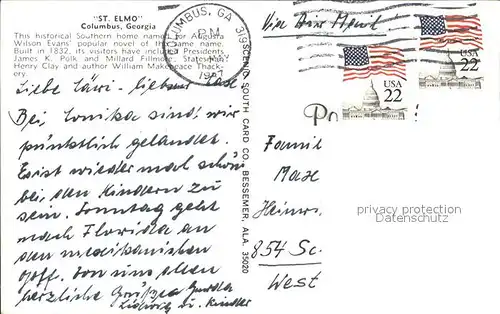 "ST. ELMO"
Columbus, Georgia
This historical Southern home named for Augusta
Wilson Evans' popular novel of the same name.
Built in 1832, its visitors have included Presidents
James K. Polk and Millard Fillmore, Statesman
Henry Clay and author William Makepeace Thack-
ery.
Liebe liebe
Bei sind wir
pünktlich gelandet.
Es ist wieder mal schön
bei den Kindern zu
sein. Sonntag geht
nach Florida an
den mexikanischen
Golf. Von uns allen
herzliche Grüße
Ludwig u. Kinder
SCENIC SOUTH CARD CO. BESSEMER, ALA. 35020
COLUMBUS, GA 319
PM
1987
USA
22
USA
22
Familie
Heinr.
privacy protection
Datenschutz
854 Sc
West